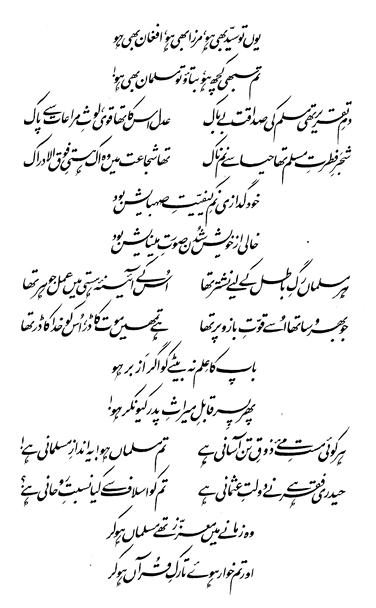 یوں تو سیّد بھی ہو، مرزا بھی ہو، افغان بھی ہو
تم سبھی کچھ ہو، بتاؤ تو مسلمان بھی ہو!
دمِ تقریر تھی مسلم کی صداقت بے باک عدل اس کا تھا قوی، لوثِ مراعات سے پاک
شجرِ فطرتِ مسلم تھا حیا سے نم ناک تھا شجاعت میں وہ اک ہستیِ فوق الادراک
خود گدازی نمِ کیفیتِ صہبایش بود
خالی از خویش شدن صورتِ مینایش بود
ہر مسلماں رگِ باطل کے لیے نشتر تھا اُس کے آئینۂ ہستی میں عمل جوہر تھا
جو بھروسا تھا اُسے قوتِ بازو پر تھا ہے تمھیں موت کا ڈر، اُس کو خدا کا ڈر تھا
باپ کا علم نہ بیٹے کو اگر ازبر ہو
پھر پسر قابلِ میراثِ پدر کیونکر ہو!
ہر کوئی مستِ مئے ذوقِ تن آسانی ہے تم مسلماں ہو! یہ اندازِ مسلمانی ہے!
حیدری فقر ہے نے دولتِ عثمانی ہے تم کو اسلاف سے کیا نسبتِ روحانی ہے؟
وہ زمانے میں معزز تھے مسلماں ہو کر
اور تم خوار ہوئے تارکِ قرآں ہو کر